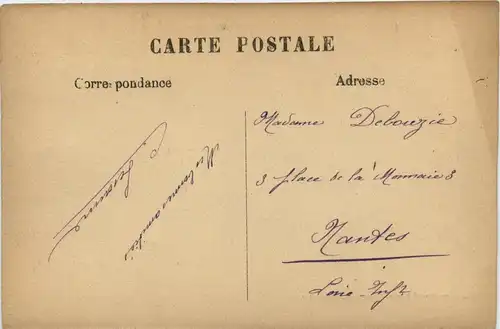 CARTE POSTALE
Correspondance
Adresse
Madame Debouzie
3 place de la Monnaie 3
Nantes
Loire-Infre
amitiés